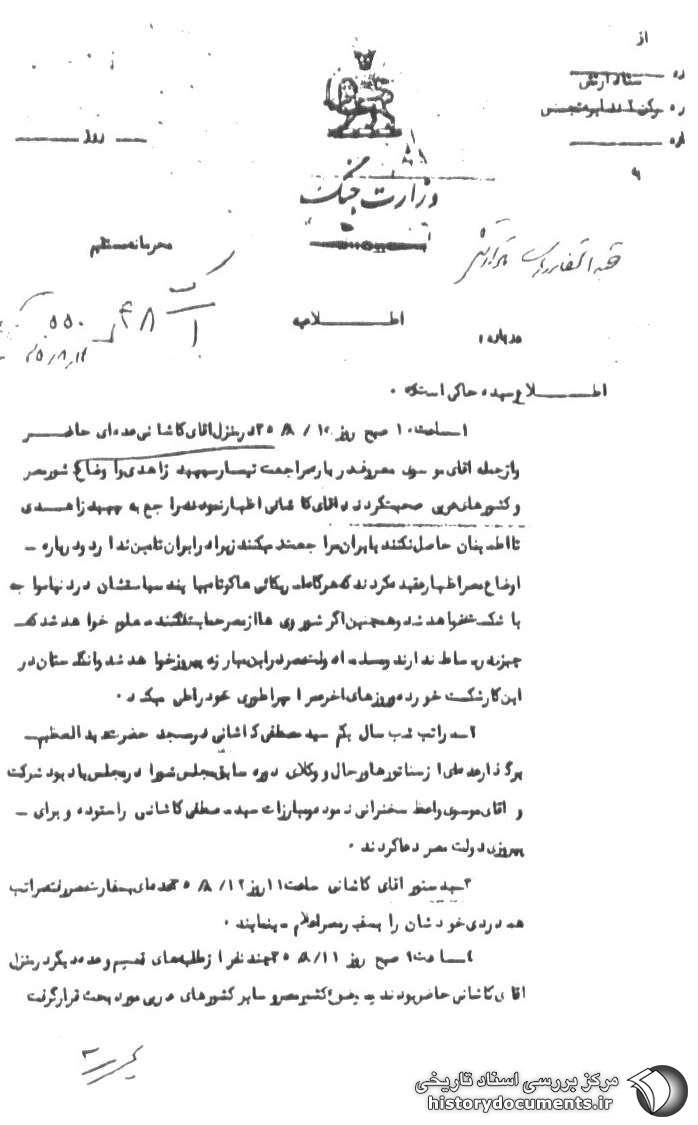 از
ستاد ارتش
رکن ۲
وزارت جنگ
محرمانه مستقیم
۵۵۰
اطلاعیه
درباره
اطلاع رسیده حاکی است که ۰
۱ـ ساعت ۱۰ صبح روز ۱۰/ ۸/ ۳۵ در منزل آقای کاشانی عده‌ای حاضر
و از جمله آقای موسوی معروف درباره مراجعت تیمسار سپهبد زاهدی و اوضاع کشور مصر
و کشورهای عربی صحبت کردند و آقای کاشانی اظهار نمودند راجع به سپهبد زاهدی
تا اطمینان حاصل نکنند بایران مراجعت نمیکنند زیرا در ایران تامین ندارد و درباره ـ
اوضاع مصر اظهار عقیده کردند که هرگاه امریکائی‌ها کوتاه بیایند سیاستشان در دنیا مواجه
با شکست خواهد شد و همچنین اگر شوروی‌ها از مصر حمایت نکنند معلوم خواهد شد که
چیزی در بساط ندارند و دولت مصر در این مبارزه پیروز خواهد شد و انگلستان در
این کار شکست خورده و روزهای آخر عمر امپراطوری خود را طی میکند ۰
۲ـ مراتب شب سال یکم سید مصطفی کاشانی در مسجد حضرت عبدالعظیم ـ
برگذار عده‌ای از سناتورها و رجال و وکلای دوره سابق مجلس شورا در مجلس یادبود شرکت
و آقای موسوی واعظ سخنرانی نموده و مبارزات سید مصطفی کاشانی را ستوده و برای ـ
پیروزی دولت مصر دعا کردند ۰
۳ـ بدستور آقای کاشانی ساعت ۱۱ روز ۱۲/ ۸/ ۳۵ عده‌ای بسفارت مصر رفته مراتب
همدردی خودشان را بسفیر مصر اعلام مینمایند ۰
۴ـ ساعت ۹ صبح روز ۱۱/ ۸/ ۳۵ چند نفر از طلبه‌های قم و عده دیگر در منزل
آقای کاشانی حاضر بودند وضع کشور مصر و سایر کشورهای عربی مورد بحث قرار گرفت
مرکز بررسی اسناد تاریخی
historydocuments.ir